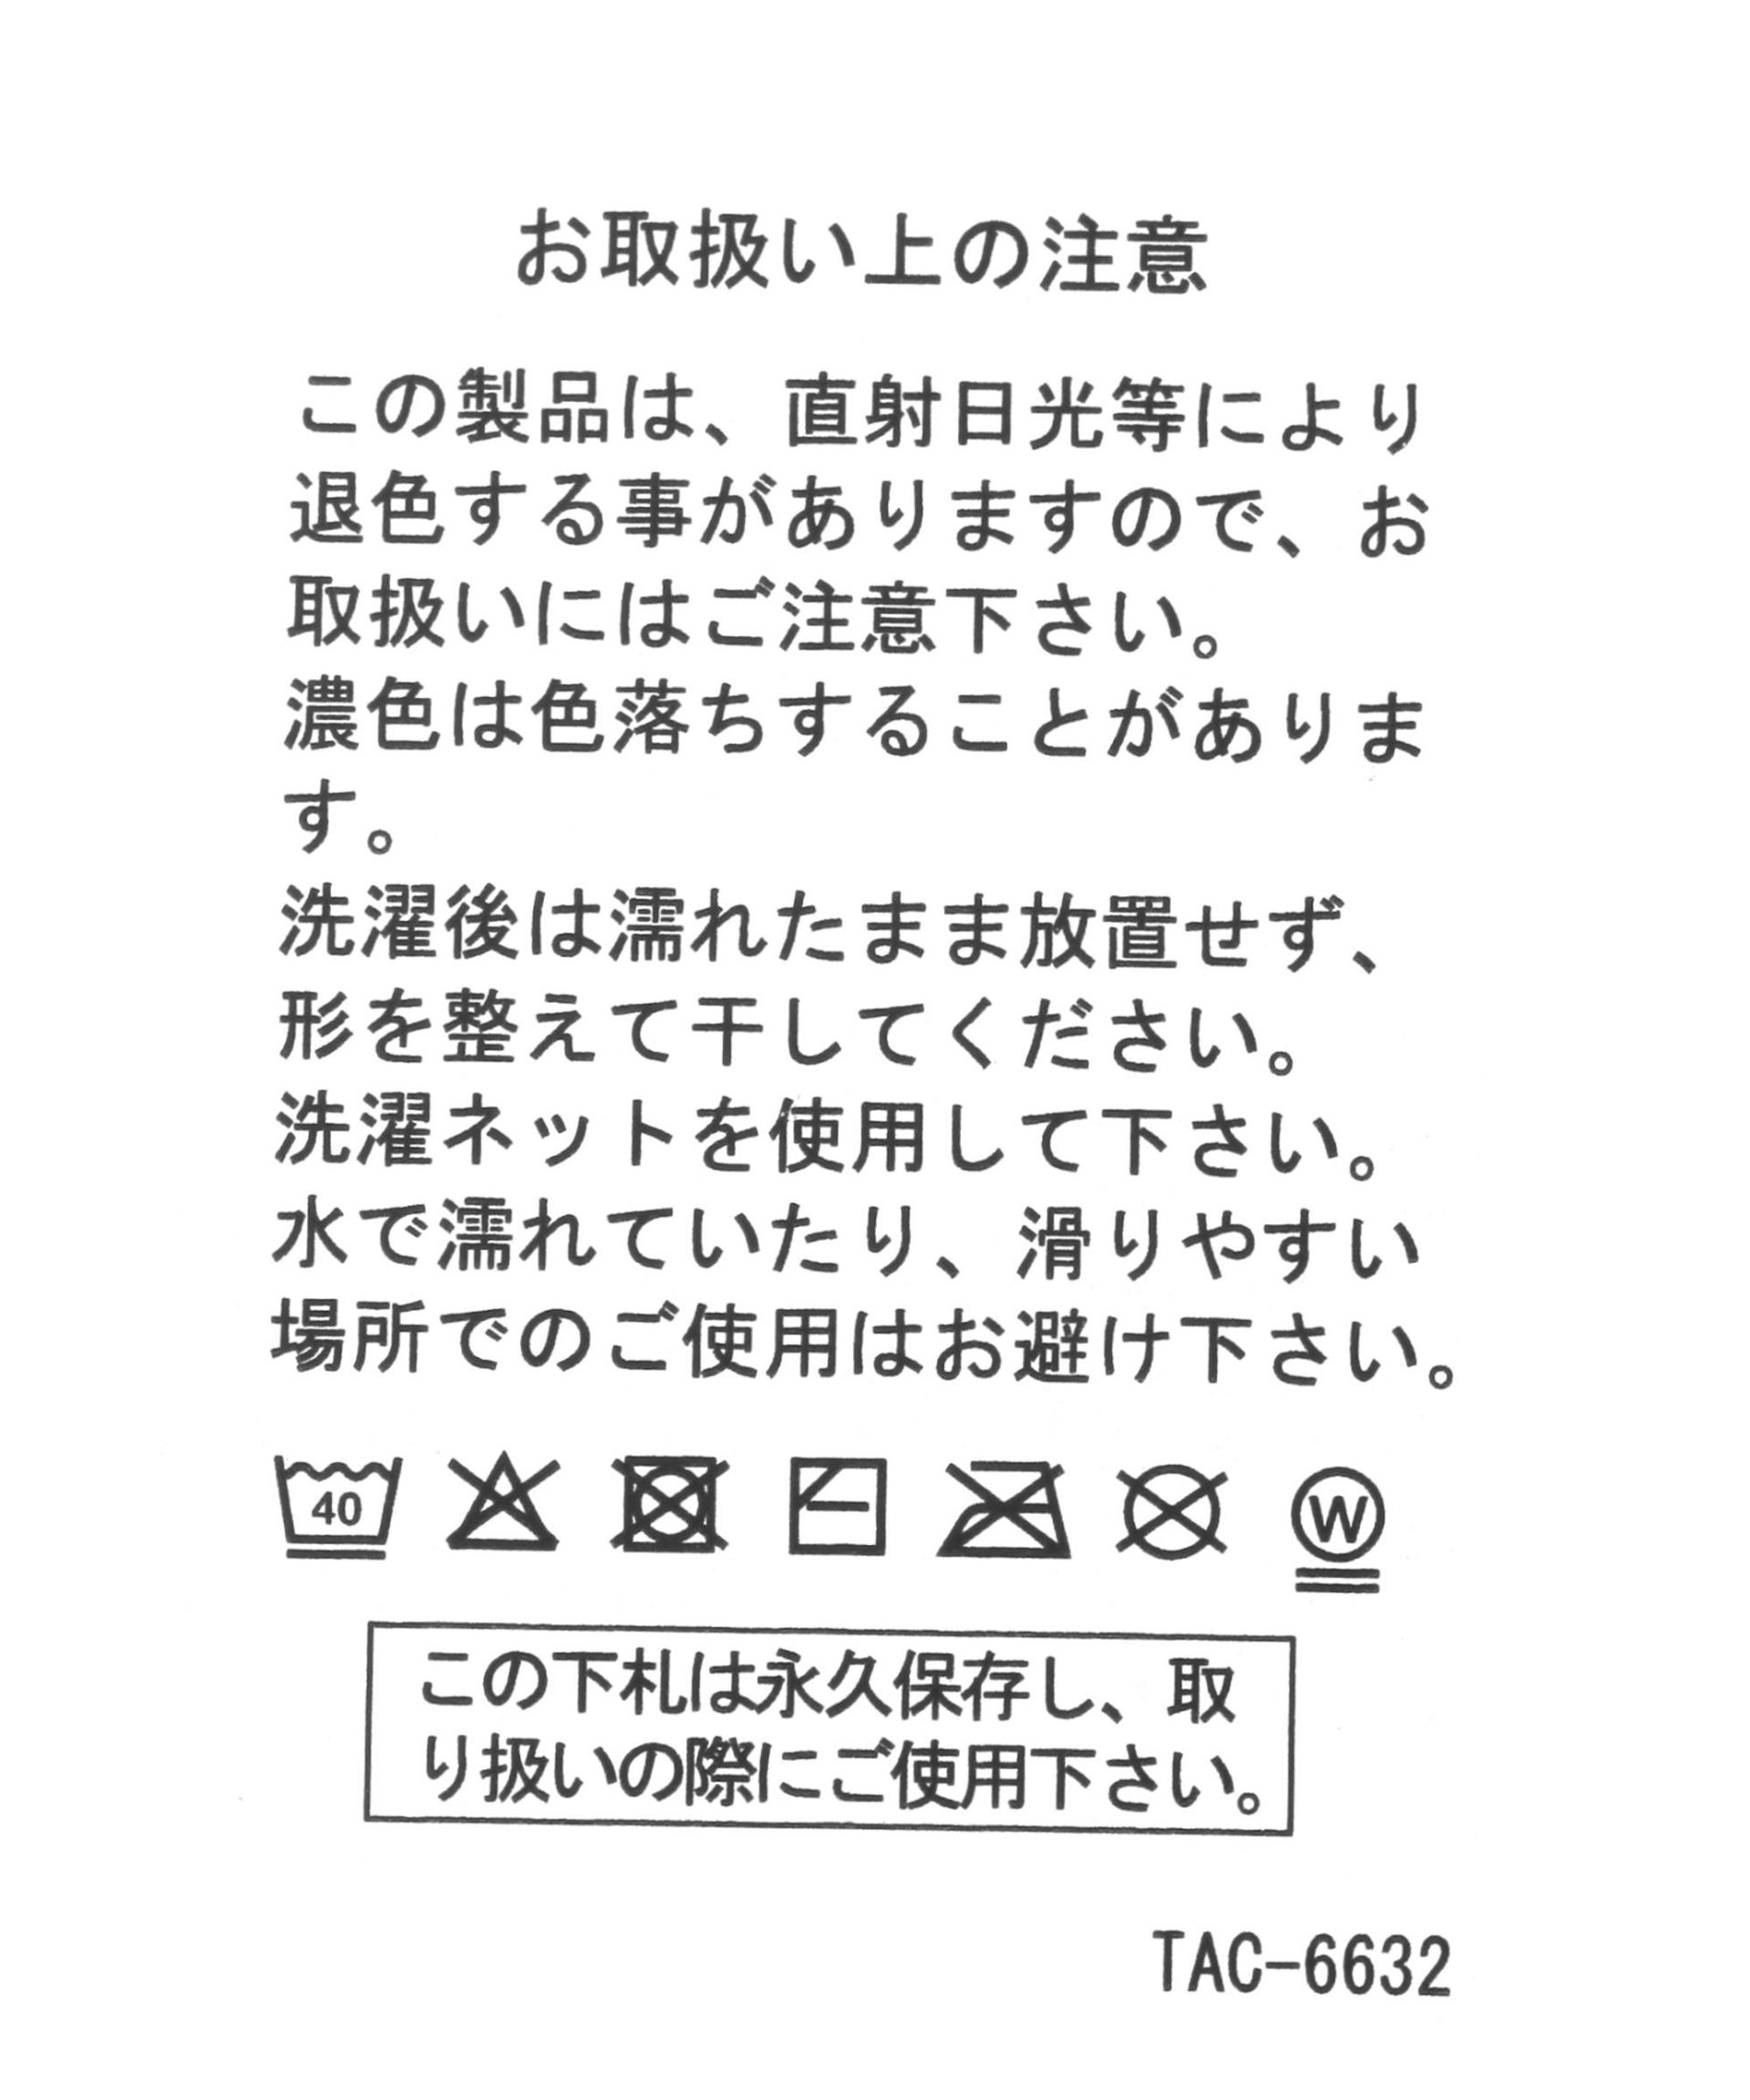 お取扱い上の注意
この製品は、直射日光等により
退色する事がありますので、お
取扱いにはご注意下さい。
濃色は色落ちすることがありま
す。
洗濯後は濡れたまま放置せず、
形を整えて干してください。
洗濯ネットを使用して下さい。
水で濡れていたり、滑りやすい
場所でのご使用はお避け下さい。
40 W
この下札は永久保存し、取
り扱いの際にご使用下さい。
TAC-6632